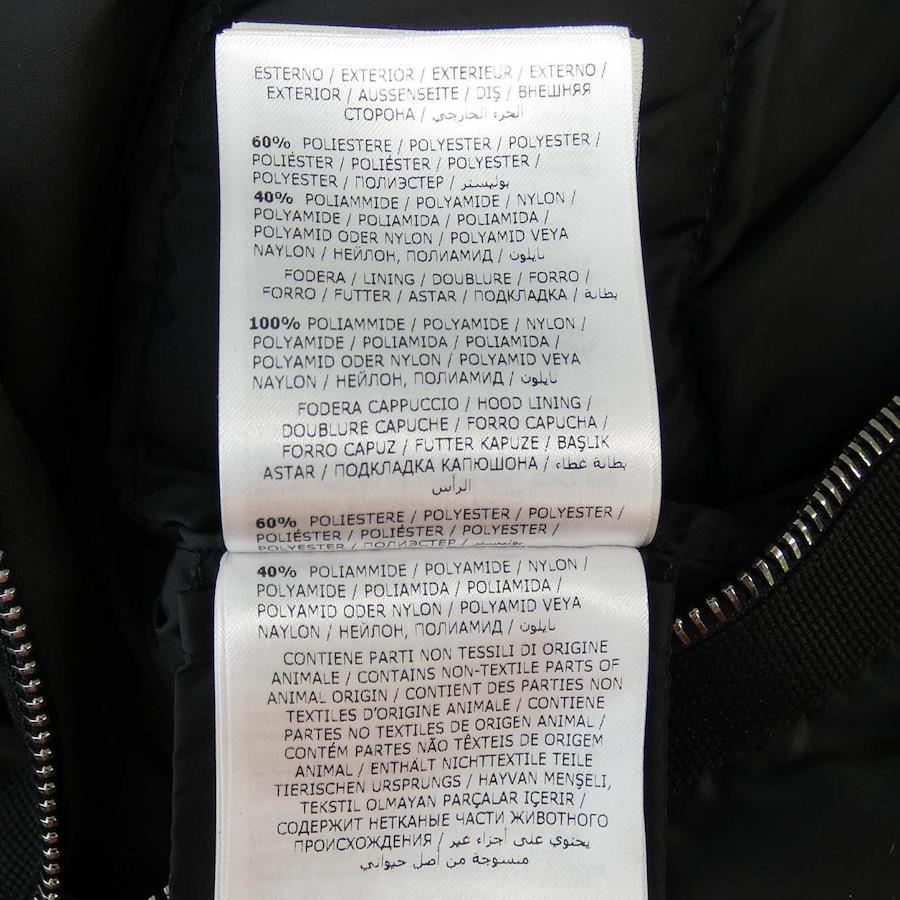 ESTERNO / EXTERIOR / EXTERIEUR / EXTERNO /
EXTERIOR / AUSSENSEITE / DIŞ / ВНЕШНЯЯ
СТОРОНА / الجزء الخارجي
60% POLIESTERE / POLYESTER / POLYESTER /
POLIÉSTER / POLIÉSTER / POLYESTER /
POLYESTER / ПОЛИЭСТЕР / بوليستر
40% POLIAMMIDE / POLYAMIDE / NYLON /
POLYAMIDE / POLIAMIDA / POLIAMIDA /
POLYAMID ODER NYLON / POLYAMID VEYA
NAYLON / НЕЙЛОН, ПОЛИАМИД / نايلون
FODERA / LINING / DOUBLURE / FORRO /
FORRO / FUTTER / ASTAR / ПОДКЛАДКА / بطانة
100% POLIAMMIDE / POLYAMIDE / NYLON /
POLYAMIDE / POLIAMIDA / POLIAMIDA /
POLYAMID ODER NYLON / POLYAMID VEYA
NAYLON / НЕЙЛОН, ПОЛИАМИД / نايلون
FODERA CAPPUCCIO / HOOD LINING /
DOUBLURE CAPUCHE / FORRO CAPUCHA /
FORRO CAPUZ / FUTTER KAPUZE / BAŞLIK
ASTAR / ПОДКЛАДКА КАПЮШОНА / بطانة غطاء
الرأس
60% POLIESTERE / POLYESTER / POLYESTER /
POLIÉSTER / POLIÉSTER / POLYESTER /
POLYESTER / ПОЛИЭСТЕР / بوليستر
40% POLIAMMIDE / POLYAMIDE / NYLON /
POLYAMIDE / POLIAMIDA / POLIAMIDA /
POLYAMID ODER NYLON / POLYAMID VEYA
NAYLON / НЕЙЛОН, ПОЛИАМИД / نايلون
CONTIENE PARTI NON TESSILI DI ORIGINE
ANIMALE / CONTAINS NON-TEXTILE PARTS OF
ANIMAL ORIGIN / CONTIENT DES PARTIES NON
TEXTILES D'ORIGINE ANIMALE / CONTIENE
PARTES NO TEXTILES DE ORIGEN ANIMAL /
CONTÉM PARTES NÃO TÊXTEIS DE ORIGEM
ANIMAL / ENTHÄLT NICHTTEXTILE TEILE
TIERISCHEN URSPRUNGS / HAYVAN MENŞELİ,
TEKSTIL OLMAYAN PARÇALAR IÇERIR /
СОДЕРЖИТ НЕТКАНЫЕ ЧАСТИ ЖИВОТНОГО
ПРОИСХОЖДЕНИЯ / يحتوي على أجزاء غير
منسوجة من أصل حيواني